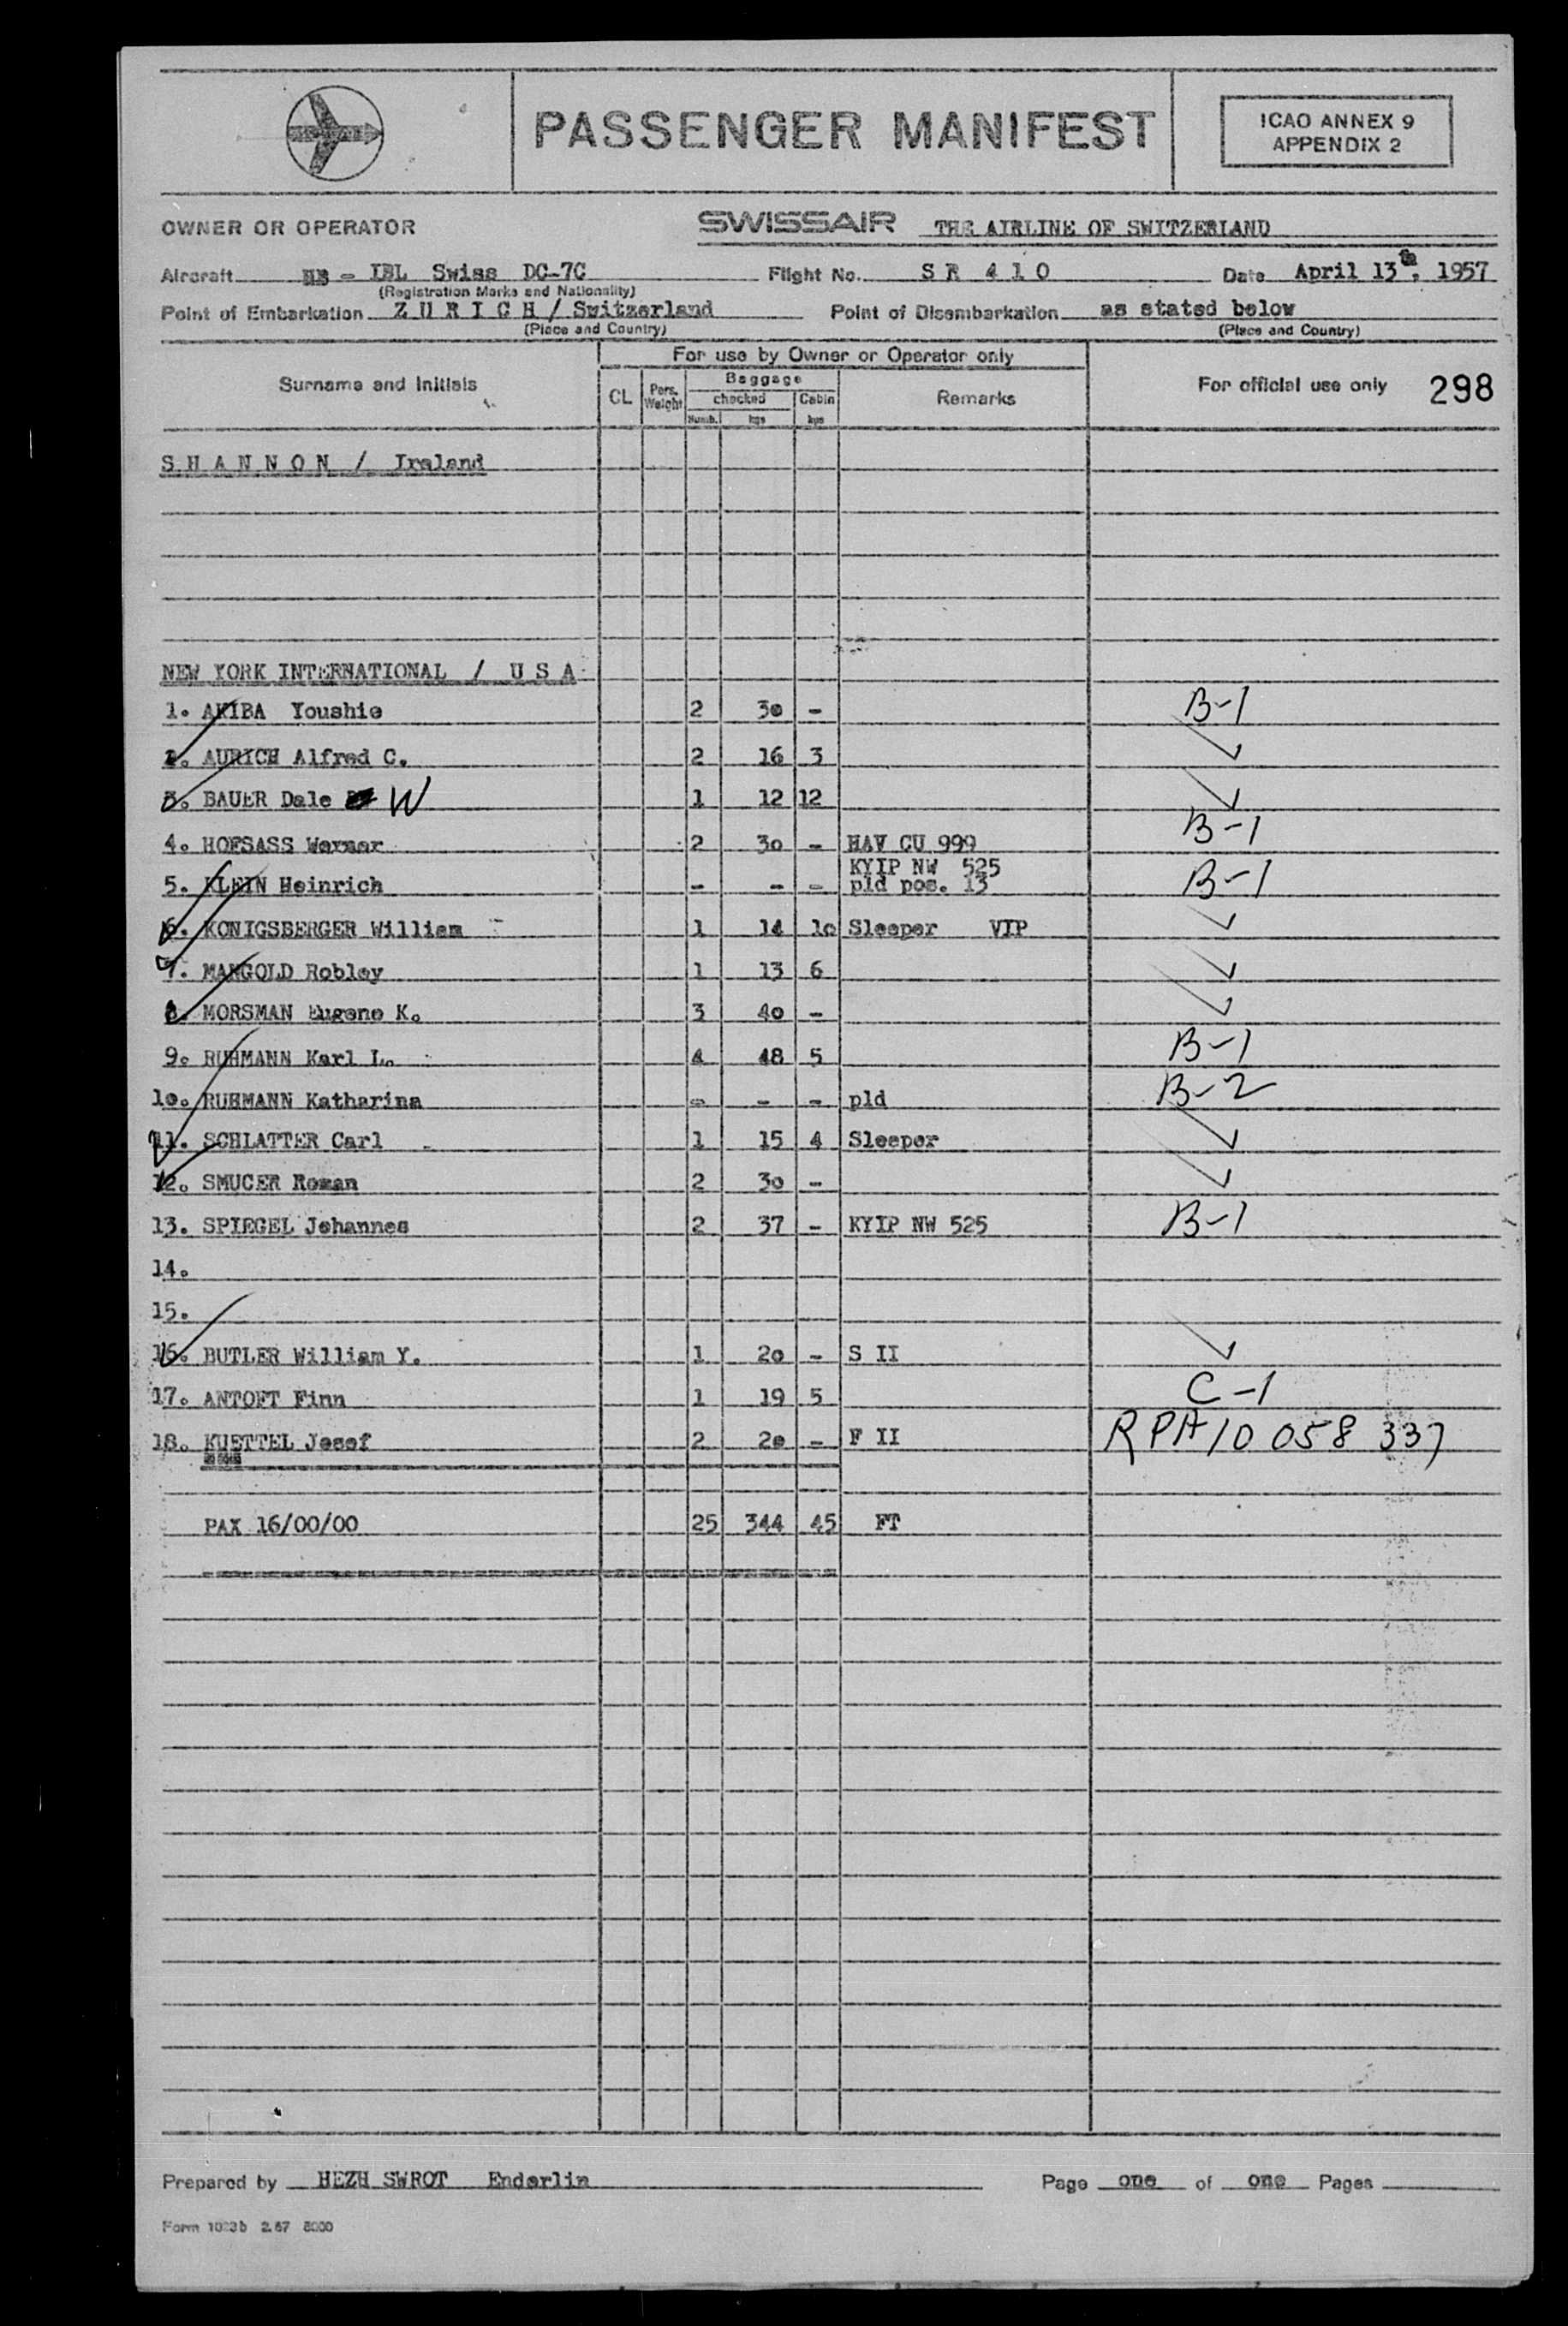 PASSENGER MANIFEST
ICAO ANNEX 9
APPENDIX 2
OWNER OR OPERATOR SWISSAIR THE AIRLINE OF SWITZERLAND
Aircraft HB - IBL Swiss DC-7C Flight No. S R 4 1 0 Date April 13th, 1957
(Registration Marks and Nationality)
Point of Embarkation Z U R I C H / Switzerland Point of Disembarkation as stated below
(Place and Country) (Place and Country)
For use by Owner or Operator only
Surname and Initials CL Pers. Weight Baggage checked Cabin Remarks For official use only 298
Numb. kgs kgs
S H A N N O N / Ireland
NEW YORK INTERNATIONAL / U S A
1. AKIBA Youshie 2 3o - B-1
2. AURICH Alfred C. 2 16 3 ✓
3. BAUER Dale W 1 12 12 ✓
4. HOFSASS Werner 2 3o - HAV CU 999 B-1
KYIP NW 525
5. KLEIN Heinrich - - - pld pos. 13 B-1
6. KONIGSBERGER William 1 14 1o Sleeper VIP ✓
7. MANGOLD Robley 1 13 6 ✓
8. MORSMAN Eugene K. 3 4o - ✓
9. RUHMANN Karl L. 4 48 5 B-1
1o. RUHMANN Katharina - - - pld B-2
11. SCHLATTER Carl 1 15 4 Sleeper ✓
12. SMUCER Roman 2 3o - ✓
13. SPIEGEL Johannes 2 37 - KYIP NW 525 B-1
14.
15.
16. BUTLER William Y. 1 2o - S II ✓
17. ANTOFT Finn 1 19 5 C-1
18. KUETTEL Josef 2 2o - F II RPA 10 058 337
PAX 16/00/00 25 344 45 FT
Prepared by HEZH SWROT Enderlin Page one of one Pages
Form 1023b 2.57 8000